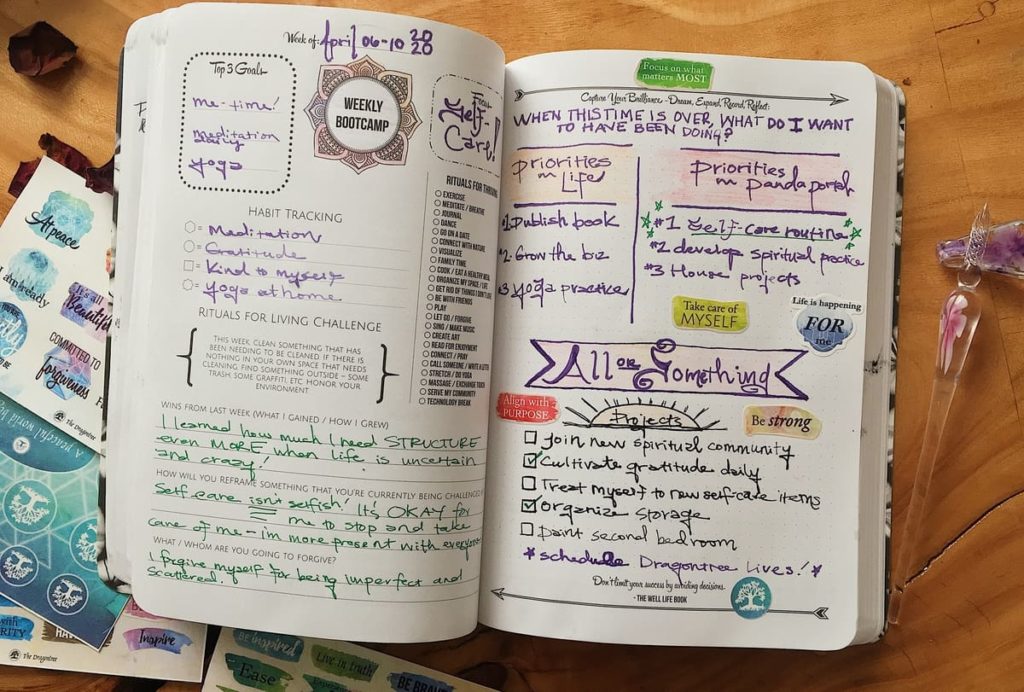 Week of: April 06-10 2020
Top 3 Goals
me-time!
meditation
daily
yoga
WEEKLY
BOOTCAMP
Focus
Self-
Care!
HABIT TRACKING
= Meditation
= Gratitude
= Kind to myself
= Yoga at home
RITUALS FOR LIVING CHALLENGE
THIS WEEK CLEAN SOMETHING THAT HAS
BEEN NEEDING TO BE CLEANED. IF THERE IS
NOTHING IN YOUR OWN SPACE THAT NEEDS
CLEANING, FIND SOMETHING OUTSIDE – SOME
TRASH, SOME GRAFFITI, ETC. HONOR YOUR
ENVIRONMENT
RITUALS FOR
EXERCISE
MEDITATE / BREATHE
JOURNAL
DANCE
GO ON A DATE
CONNECT WITH NATURE
VISUALIZE
FAMILY TIME
COOK / EAT A HEALTHY MEAL
ORGANIZE MY SPACE / LIFE
GET RID OF THINGS I DON'T
BE WITH FRIENDS
PLAY
LET GO / FORGIVE
SING / MAKE MUSIC
CREATE ART
READ FOR ENJOYMENT
CONNECT / PRAY
CALL SOMEONE / WRITE A
STRETCH / DO YOGA
MASSAGE / EXCHANGE TOUCH
SERVE MY COMMUNITY
TECHNOLOGY BREAK
WINS FROM LAST WEEK (WHAT I GAINED / HOW I GREW)
I learned how much I need STRUCTURE
even MORE when life is uncertain
and crazy!
HOW WILL YOU REFRAME SOMETHING THAT YOU'RE CURRENTLY BEING
Self-care isn't selfish! It's OKAY for
me to stop and take
care of me – I'm more present with everyone
WHAT / WHOM ARE YOU GOING TO FORGIVE?
I forgive myself for being imperfect and
scattered.
Focus on what
matters MOST
Capture Your Brilliance - Dream, Expand, Record, Reflect:
WHEN THIS TIME IS OVER, WHAT DO I WANT
TO HAVE BEEN DOING?
Priorities
in Life
#1 Publish book
#2 Grow the biz
#3 Yoga practice
Priorities
in pandaportal
#1 Self-care routine
#2 develop spiritual practice
#3 House
projects
Take care of
MYSELF
Life is happening
FOR
me
All or Something
Align with
PURPOSE
Projects
Be strong
Join new spiritual community
Cultivate gratitude daily
Treat myself to new self-care items
Organize storage
Paint second bedroom
*schedule Dragontree Lives!*
Don't limit your success by avoiding decisions.
- THE WELL LIFE BOOK
At peace
It's all
Beautiful
COMMITTED TO
forgiveness
The Dragontree
A peaceful world
Inspire
The Dragontree
Be inspired
Live in truth
Ease